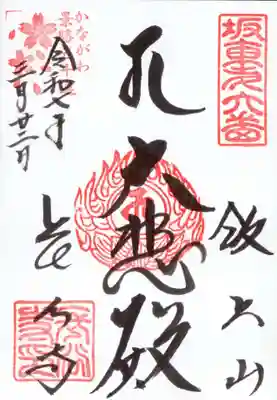 坂東第六番
飯上山
大悲殿
長谷寺
かながわ
景勝
令和七年
三月廿二日